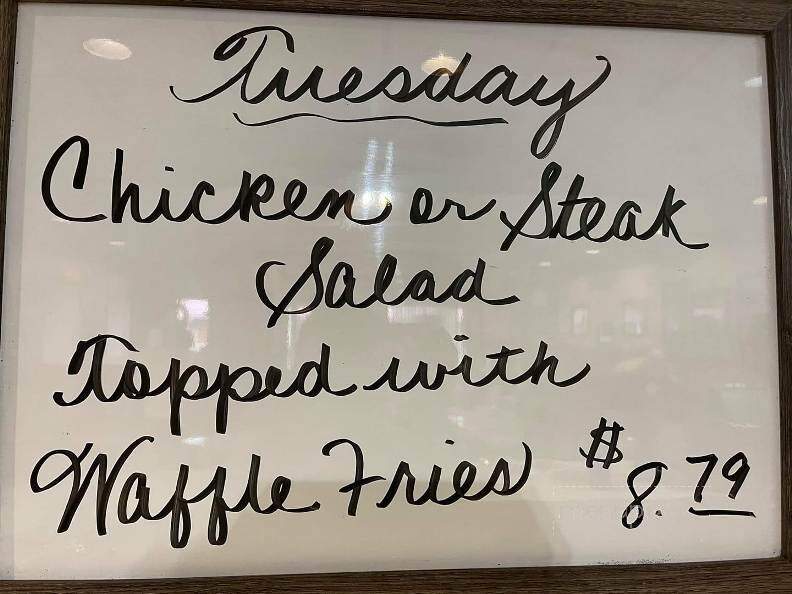 Tuesday
Chicken or Steak
Salad
Topped with
Waffle Fries $8.79